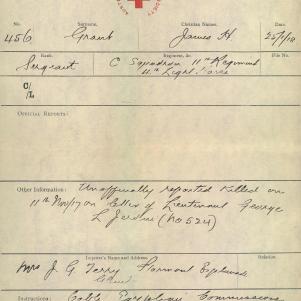 No. Surname. Christian Names. Date.
456 Grant James H. 25/2/18
Rank. Regiment, &c. File No.
Sergeant C Squadron 11th Regiment
4th Light Horse
C/L
OFFICIAL REPORTS:
Other Information: Unofficially reported killed on
11th Nov/17 on letter of Lieutenant George
L Jardine (No 524)
Inquirer's Name and Address Relation
Mrs J. G. Terry Esplanade
Instructions: Cable Commissions